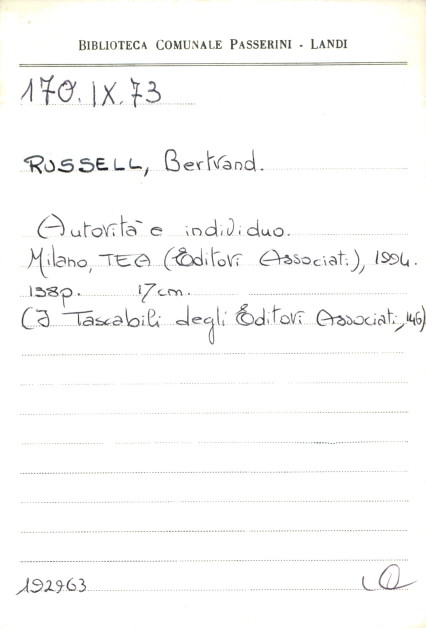 BIBLIOTECA COMUNALE PASSERINI - LANDI
170.IX.73
RUSSELL, Bertrand.
Autorità e individuo.
Milano, TEA (Editori Associati), 1994.
138p. 17cm.
(I Tascabili degli Editori Associati, 146)
192963